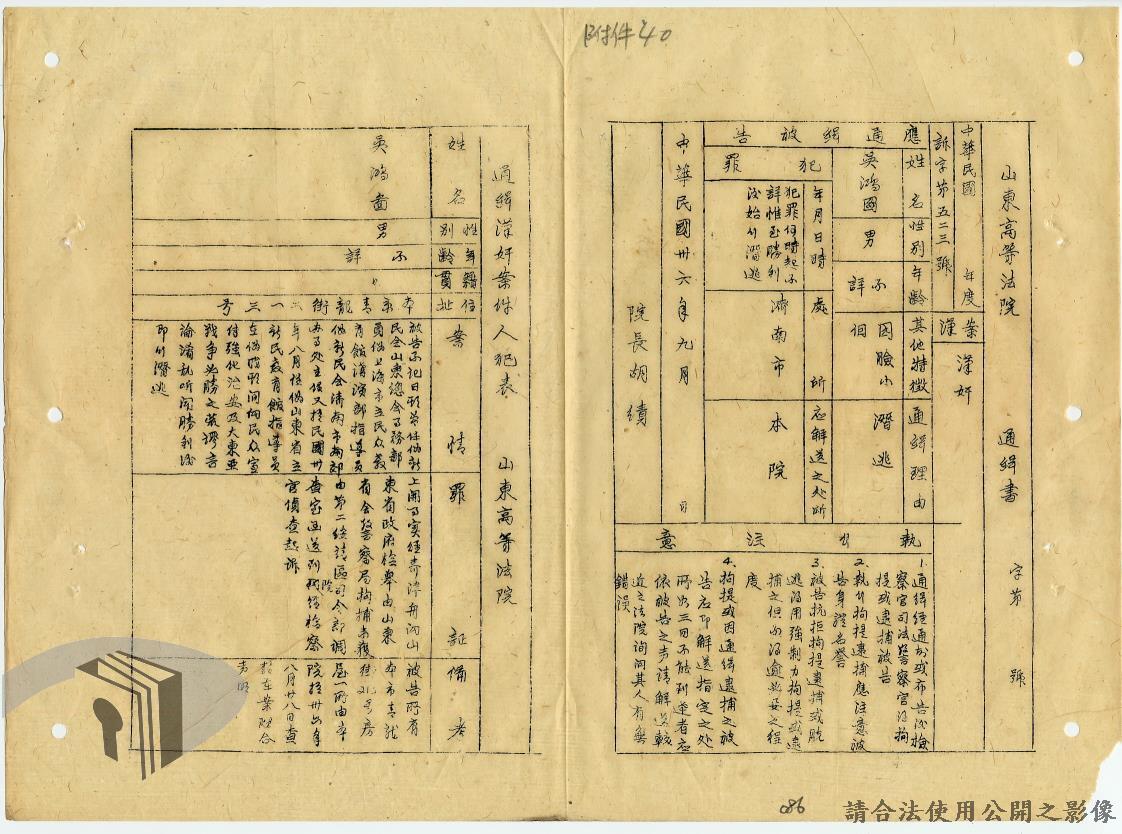 附件40
山東高等法院　通緝書　字第　號
中華民國　年度
訴字第五二三號
案
漢奸
應通緝被告
姓名
吳鴻圖
性別
男
年齡
不詳
其他特徵
圓臉小個
通緝理由
潛逃
犯罪
年月日時
犯罪何時起不
詳惟至勝利
後始行潛逃
處所
濟南市
應解送之處所
本院
中華民國卅六年九月　日
院長胡績
執行注意
1.通緝經通知或布告後檢
察官司法警察官得拘
提或逮捕被告
2.執行拘提逮捕應注意被
告身體名譽
3.被告抗拒拘提逮捕或脫
逃得用強制力拘提或逮
捕之但不得逾必要之程
度
4.拘提或因通緝逮捕之被
告應即解送指定之處
所如三日不能到達者應
依被告之聲請解送較
近之法院詢問其人有無
錯誤
通緝漢奸案件人犯表　山東高等法院
姓名
吳鴻圖
性別
男
年齡
不詳
籍貫
住址
本市青龍街六一三號
案情
被告不記日期曾任偽新
民會山東總會事務部
員偽上海市立民众教
育館講演部指導員
偽新民會濟南市西郊
辦事處主任又於民國卅
年八月任偽山東省立
新民教育館指導員
在偽職期間向民众宣
傳強化治安及大東亞
戰爭必勝之荒謬言
論淆亂听聞勝利後
即行潛逃
罪証
上開事實經壽澤舟向山
東省政府檢舉由山東
省會警察局拘捕未獲
由第二綏靖區司令部調
查室函送到院發檢察
官偵查起訴
備考
被告所有
本市青龍
街21號房
屋一所由本
院於卅五年
八月廿八日查
封在案理合
声明
086
請合法使用公開之影像